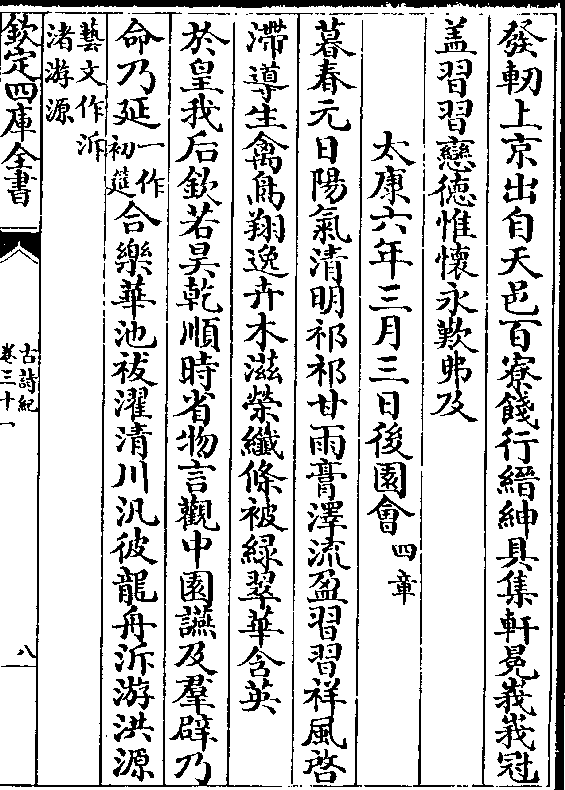 發軔上京出自天邑百寮餞行縉紳具集軒冕峩峩冠
盖習習戀德惟懷永歎弗及
太康六年三月三日後園會四章
暮春元日陽氣清明祁祁甘雨膏澤流盈習習祥風啓
滯導生禽鳥翔逸卉木滋榮纖條被緑翠華含英
於皇我后欽若昊乾順時省物言觀中園讌及羣辟乃
命乃延一作初筵合樂華池祓濯清川汎彼龍舟泝游洪源
藝文作泝渚游源
欽定四庫全書
古詩紀
卷三十一
八